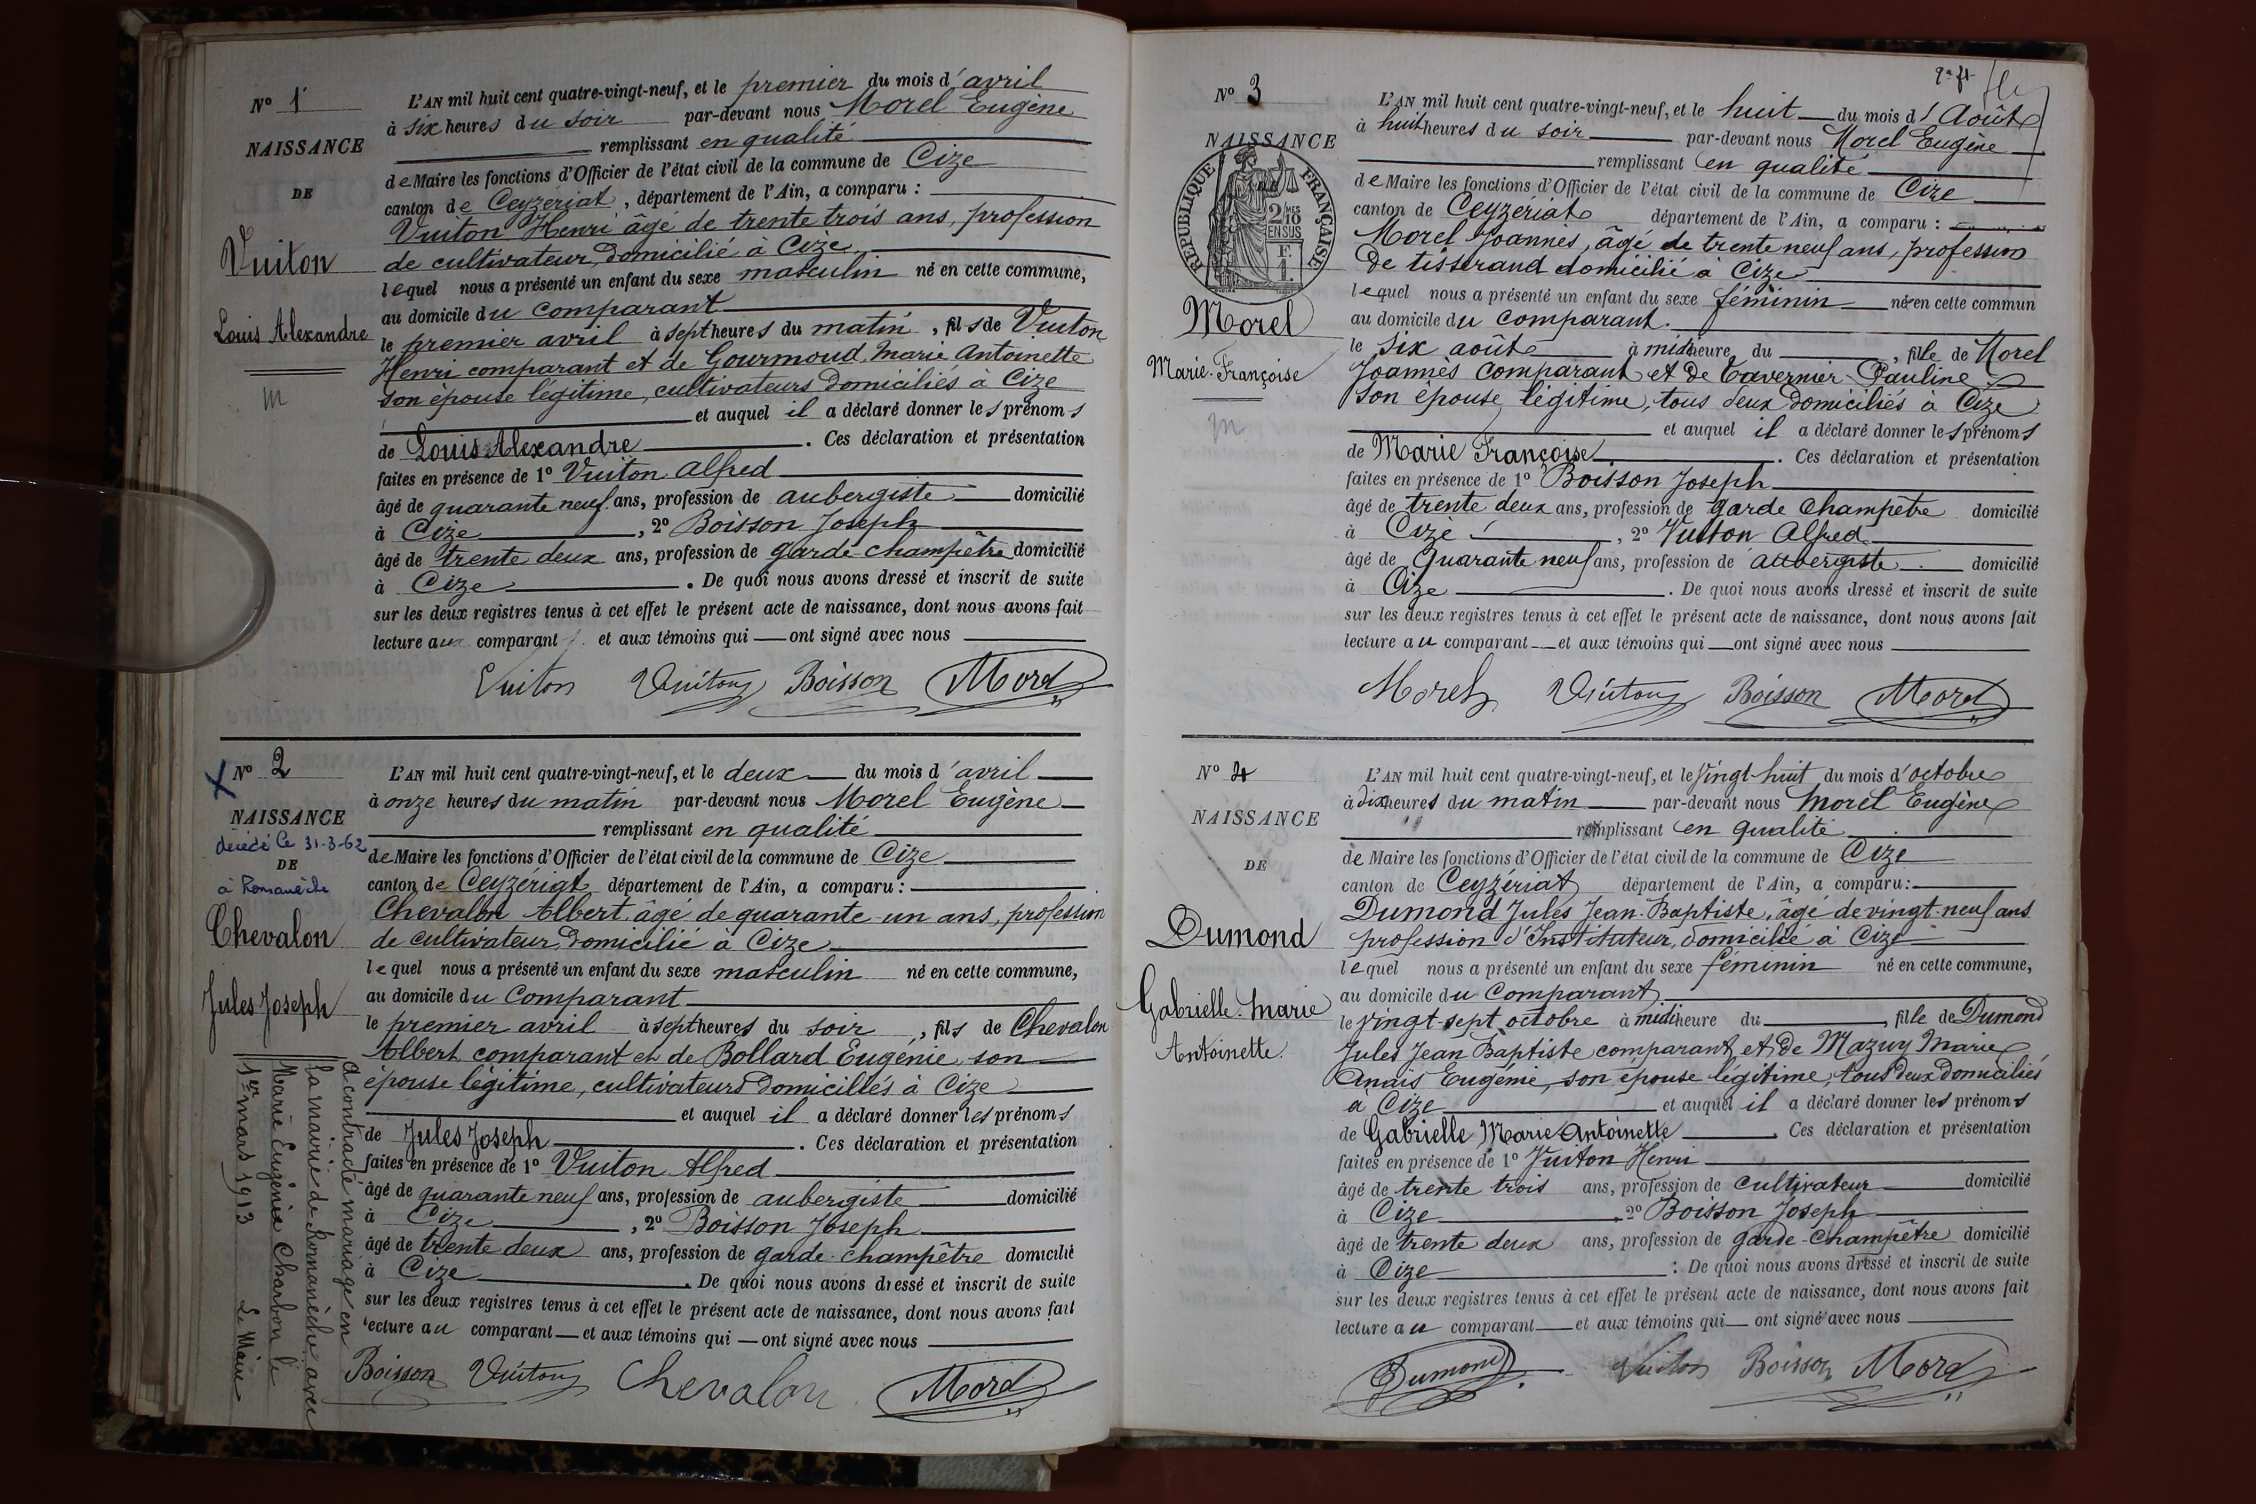 Nº 1
NAISSANCE
DE
Vuiton
Louis Alexandre
m
L'AN mil huit cent quatre-vingt-neuf, et le premier du mois d'avril
à six heures du soir par-devant nous Morel Eugène
remplissant en qualité
de Maire les fonctions d'Officier de l'état civil de la commune de Cize
canton de Ceyzériat, département de l'Ain, a comparu :
Vuiton Henri âgé de trente trois ans, profession
de cultivateur, domicilié à Cize
lequel nous a présenté un enfant du sexe masculin né en cette commune,
au domicile du comparant
le premier avril à sept heures du matin, fils de Vuiton
Henri comparant et de Gourmoud Marie Antoinette
son épouse légitime, cultivateurs domiciliés à Cize
et auquel il a déclaré donner les prénoms
de Louis Alexandre. Ces déclaration et présentation
faites en présence de 1º Vuiton Alfred
âgé de quarante neuf ans, profession de aubergiste domicilié
à Cize, 2º Boisson Joseph
âgé de trente deux ans, profession de garde-champêtre domicilié
à Cize. De quoi nous avons dressé et inscrit de suite
sur les deux registres tenus à cet effet le présent acte de naissance, dont nous avons fait
lecture aux comparant et aux témoins qui ont signé avec nous
Vuiton Vuiton Boisson Morel
Nº 2
NAISSANCE
décédé le 31-3-62
DE
à Romanèche
Chevalon
Jules Joseph
A contracté mariage en
la mairie de Romanèche avec
Marie Eugénie Charbon le
1er mars 1913 Le Maire
L'AN mil huit cent quatre-vingt-neuf, et le deux du mois d'avril
à onze heures du matin par-devant nous Morel Eugène
remplissant en qualité
de Maire les fonctions d'Officier de l'état civil de la commune de Cize
canton de Ceyzériat département de l'Ain, a comparu :
Chevalon Albert âgé de quarante un ans, profession
de cultivateur, domicilié à Cize
lequel nous a présenté un enfant du sexe masculin né en cette commune,
au domicile du comparant
le premier avril à sept heures du soir, fils de Chevalon
Albert comparant et de Bollard Eugénie son
épouse légitime, cultivateurs domiciliés à Cize
et auquel il a déclaré donner les prénoms
de Jules Joseph. Ces déclaration et présentation
faites en présence de 1º Vuiton Alfred
âgé de quarante neuf ans, profession de aubergiste domicilié
à Cize, 2º Boisson Joseph
âgé de trente deux ans, profession de garde-champêtre domicilié
à Cize. De quoi nous avons dressé et inscrit de suite
sur les deux registres tenus à cet effet le présent acte de naissance, dont nous avons fait
lecture au comparant et aux témoins qui ont signé avec nous
Boisson Vuiton Chevalon Morel
Nº 3
NAISSANCE
DE
RÉPUBLIQUE FRANÇAISE
2/10
EN SUS
Morel
Marie-Françoise
m
L'AN mil huit cent quatre-vingt-neuf, et le huit du mois d'Août
à huit heures du soir par-devant nous Morel Eugène
remplissant en qualité
de Maire les fonctions d'Officier de l'état civil de la commune de Cize
canton de Ceyzériat département de l'Ain, a comparu :
Morel Joannès, âgé de trente neuf ans, profession
de tisserand domicilié à Cize
lequel nous a présenté un enfant du sexe féminin né en cette commun
au domicile du comparant.
le six août à midi heure du, fille de Morel
Joannès comparant et de Tavernier Pauline
son épouse légitime, tous deux domiciliés à Cize
et auquel il a déclaré donner les prénoms
de Marie Françoise. Ces déclaration et présentation
faites en présence de 1º Boisson Joseph
âgé de trente deux ans, profession de garde champêtre domicilié
à Cize, 2º Vuiton Alfred
âgé de Quarante neuf ans, profession de aubergiste domicilié
à Cize. De quoi nous avons dressé et inscrit de suite
sur les deux registres tenus à cet effet le présent acte de naissance, dont nous avons fait
lecture au comparant et aux témoins qui ont signé avec nous
Morel Vuiton Boisson Morel
Nº 4
NAISSANCE
DE
Dumond
Gabrielle-Marie
Antoinette.
L'AN mil huit cent quatre-vingt-neuf, et le vingt-huit du mois d'octobre
à dix heures du matin par-devant nous Morel Eugène
remplissant en qualité
de Maire les fonctions d'Officier de l'état civil de la commune de Cize
canton de Ceyzériat département de l'Ain, a comparu :
Dumond Jules Jean-Baptiste, âgé de vingt-neuf ans
profession d'Instituteur, domicilié à Cize
lequel nous a présenté un enfant du sexe féminin né en cette commune,
au domicile du comparant
le vingt-sept octobre à midi heure du, fille de Dumond
Jules Jean Baptiste comparant et de Mazuy Marie
Anaïs Eugénie, son épouse légitime, tous deux domiciliés
à Cize et auquel il a déclaré donner les prénoms
de Gabrielle Marie Antoinette. Ces déclaration et présentation
faites en présence de 1º Vuiton Henri
âgé de trente trois ans, profession de cultivateur domicilié
à Cize, 2º Boisson Joseph
âgé de trente deux ans, profession de garde-champêtre domicilié
à Cize. De quoi nous avons dressé et inscrit de suite
sur les deux registres tenus à cet effet le présent acte de naissance, dont nous avons fait
lecture au comparant et aux témoins qui ont signé avec nous
Dumond Vuiton Boisson Morel